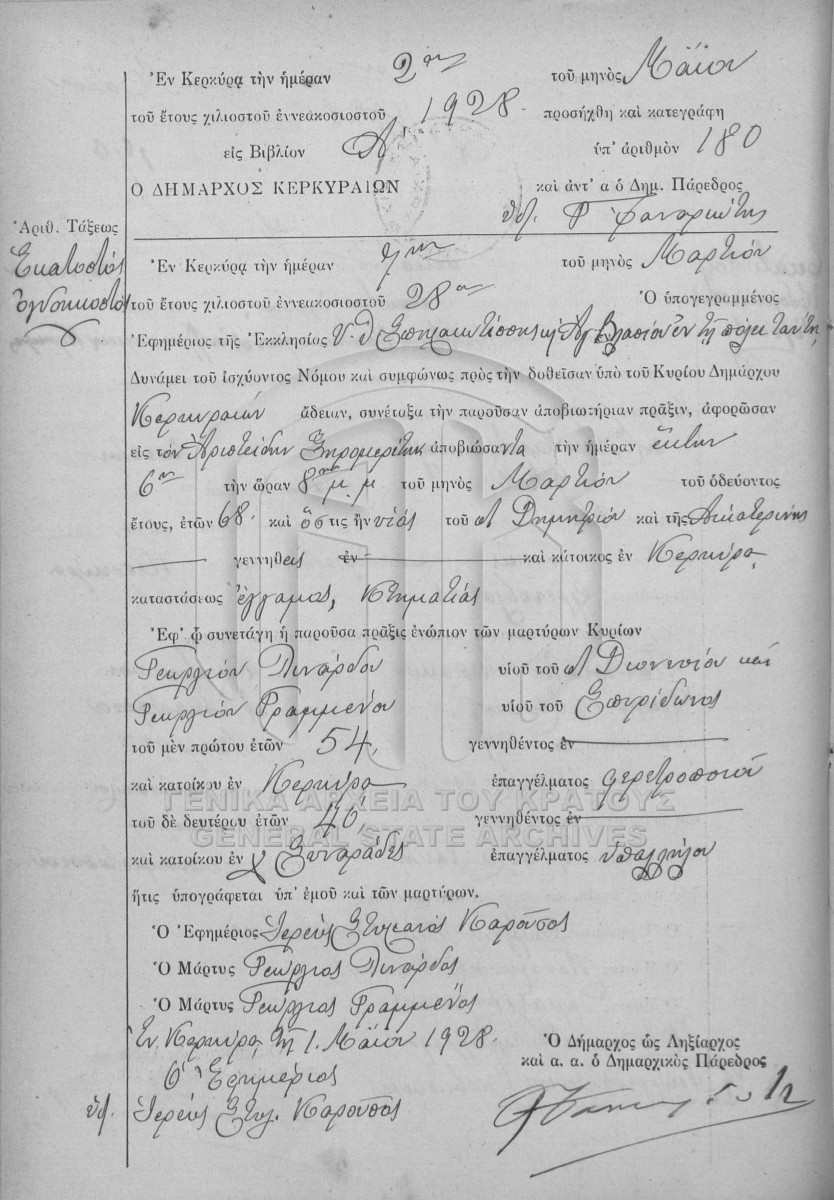 Ἐν Κερκύρᾳ τὴν ἡμέραν 2αν τοῦ μηνὸς Μαΐου
τοῦ ἔτους χιλιοστοῦ ἐννεακοσιοστοῦ 1928. προσήχθη καὶ κατεγράφη
εἰς Βιβλίον Α' ὑπ' ἀριθμὸν 180
Ο ΔΗΜΑΡΧΟΣ ΚΕΡΚΥΡΑΙΩΝ καὶ ἀντ' α ὁ Δημ. Πάρεδρος
Ἀριθ. Τάξεως
Ἑκατοστὸς
ὀγδοηκοστὸς
Ἐν Κερκύρᾳ τὴν ἡμέραν 7ην τοῦ μηνὸς Μαρτίου
τοῦ ἔτους χιλιοστοῦ ἐννεακοσιοστοῦ 28ου Ὁ ὑπογεγραμμένος
Ἐφημέριος τῆς Ἐκκλησίας Υ. Θ Σπηλαιωτίσσης κ Ἁγ Βλασίου ἐν τῇ πόλει ταύτῃ
Δυνάμει τοῦ ἰσχύοντος Νόμου καὶ συμφώνως πρὸς τὴν δοθεῖσαν ὑπὸ τοῦ Κυρίου Δημάρχου
Κερκυραίων ἄδειαν, συνέταξα τὴν παροῦσαν ἀποβιωτήριαν πρᾶξιν, ἀφορῶσαν
εἰς τὸν Ἀριστείδην Ξηρομερίτην ἀποβιώσαντα τὴν ἡμέραν ἕκτην
6ην τὴν ὥραν 8ην μ. μ τοῦ μηνὸς Μαρτίου τοῦ ὁδεύοντος
ἔτους, ἐτῶν 68. καὶ ὅστις ἦν υἱὸς τοῦ Δημητρίου καὶ τῆς Αἰκατερίνης
γεννηθεις ἐν καὶ κάτοικος ἐν Κερκύρᾳ,
καταστάσεως ἔγγαμος, Κτηματίας
Ἐφ' ᾧ συνετάγη ἡ παροῦσα πρᾶξις ἐνώπιον τῶν μαρτύρων Κυρίων
Γεωργίου Λινάρδου υἱοῦ τοῦ Διονυσίου καὶ
Γεωργίου Γραμμένου υἱοῦ τοῦ Σπυρίδωνος
τοῦ μὲν πρώτου ἐτῶν 54, γεννηθέντος ἐν
καὶ κατοίκου ἐν Κερκύρᾳ ἐπαγγέλματος φερετροποιοῦ
ΓΕΝΙΚΑ ΑΡΧΕΙΑ ΤΟΥ ΚΡΑΤΟΥΣ
τοῦ δὲ δευτέρου ἐτῶν 40, γεννηθέντος ἐν
GENERAL STATE ARCHIVES
καὶ κατοίκου ἐν Χ Συναράδες ἐπαγγέλματος ὑπαλλήλου
ἥτις ὑπογράφεται ὑπ' ἐμοῦ καὶ τῶν μαρτύρων.
Ὁ Ἐφημέριος Ἱερεὺς Στυλιανὸς Καροῦσος
Ὁ Μάρτυς Γεώργιος Λινάρδος
Ὁ Μάρτυς Γεώργιος Γραμμένος
Ἐν Κερκύρᾳ τῇ 1. Μαΐου 1928.
Ὁ Δήμαρχος ὡς Ληξίαρχος
καὶ α. α. ὁ Δημαρχικὸς Πάρεδρος
Ὁ Ἐφημέριος
ὑπ. Ἱερεὺς Στυλ. Καροῦσος